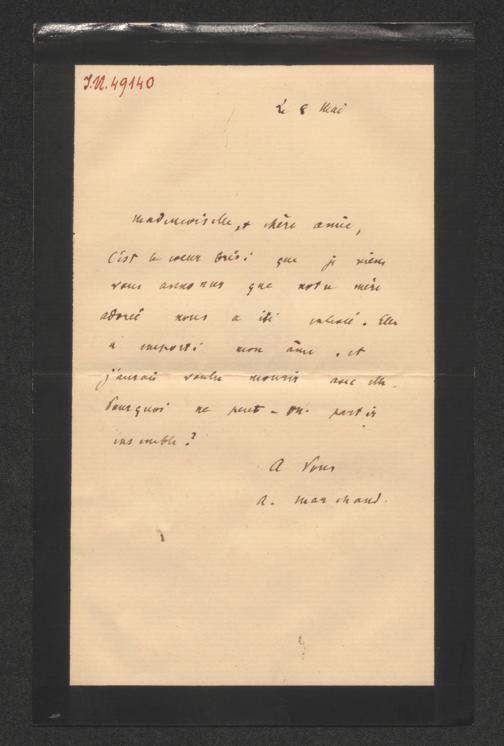 I.N. 49140
Le 8 Mai
Mademoiselle, & chère amie,
C'est le coeur brisé que je viens
vous annoncer que notre mère
adorée nous a été enlevée. Elle
a emporté mon âme, et
j'aurais voulu mourir avec elle.
Pourquoi ne peut-on partir
ensemble?
A Vous
A. Marchand.